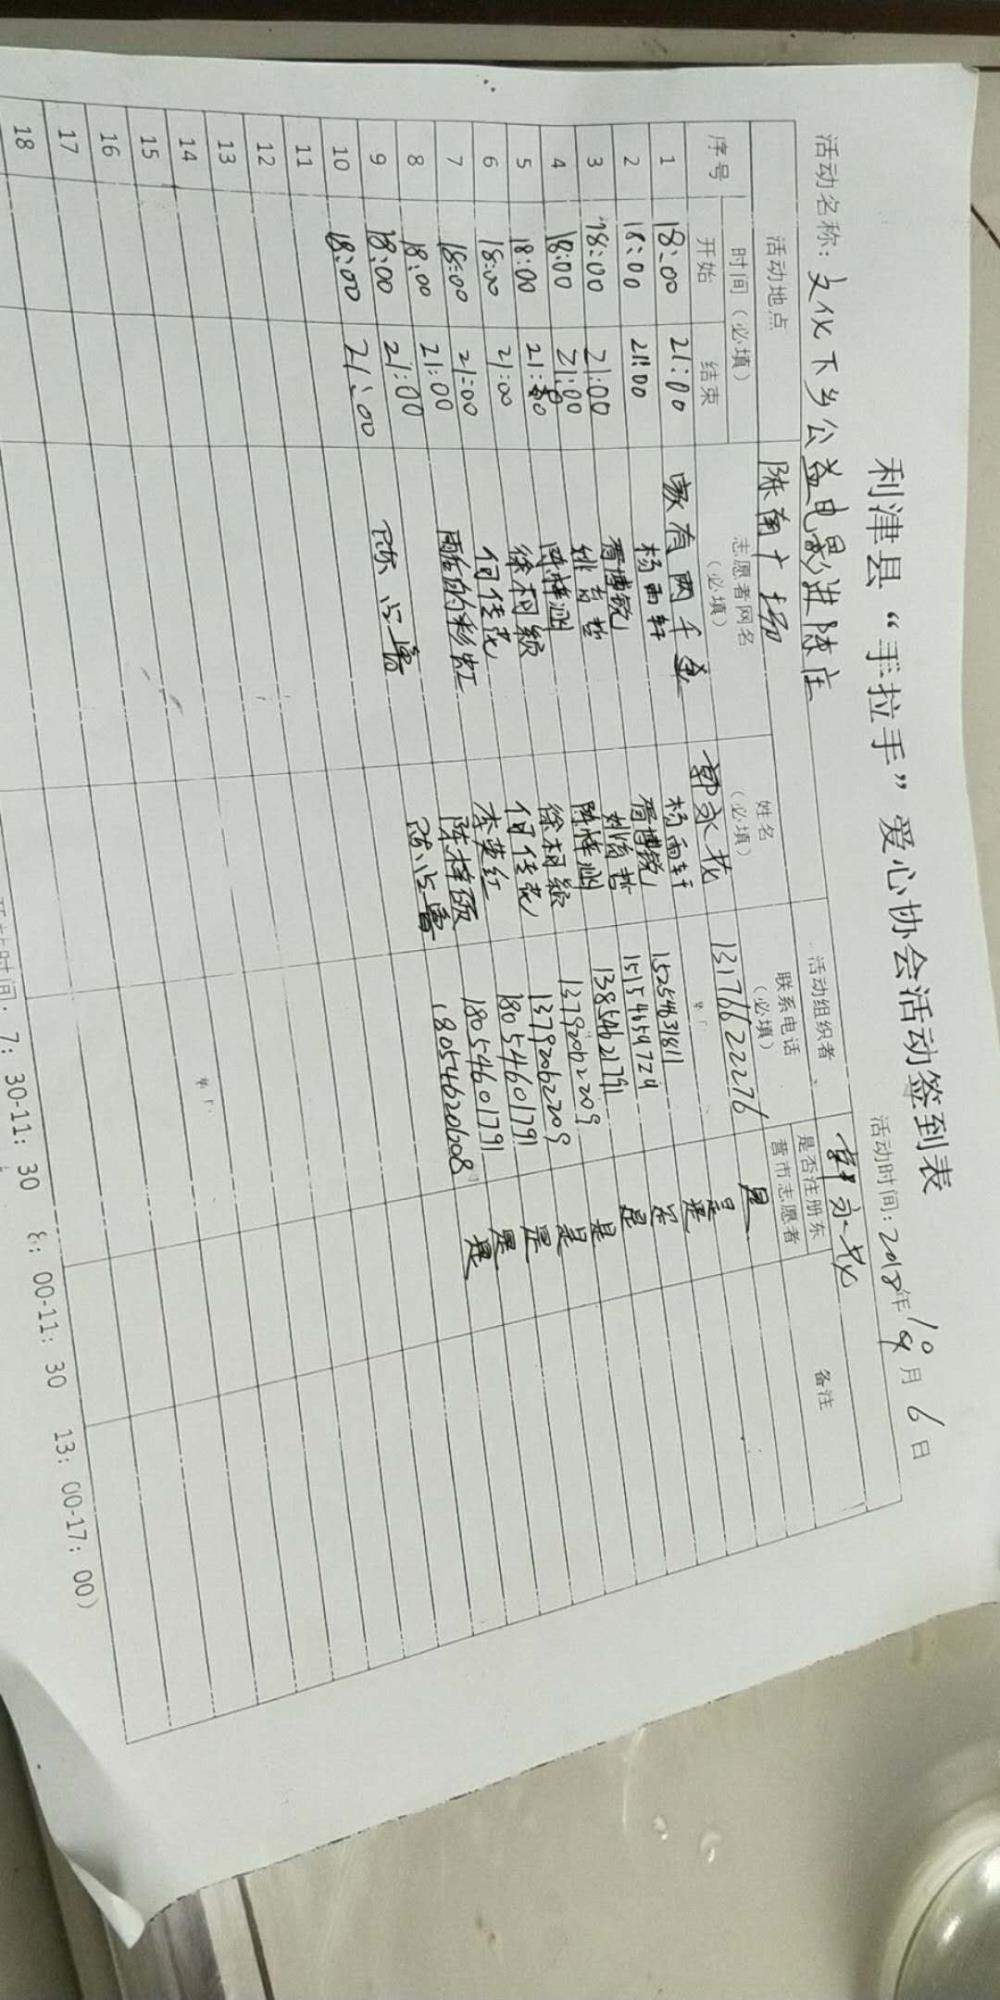 利津县“手拉手”爱心协会活动签到表
活动时间: 2018年10月6日
活动名称: 文化下乡公益电影进陈庄
活动地点 陈南广场 活动组织者
序号 时间（必填） 志愿者网名（必填） 姓名（必填） 联系电话（必填） 是否注册东营市志愿者 备注
开始 结束
1 18:00 21:00 家有两千金 郭永花 13176622276 是
2 18:00 21:00 杨雨轩 杨雨轩 是
3 18:00 21:00 胥博锐 胥博锐 15254631811 是
4 18:00 21:00 姚育哲 姚育哲 15154659724 是
5 18:00 21:00 13854621791 是
6 18:00 21:00 徐相颖 徐相颖 13792062209 是
7 18:00 21:00 何佳悦 何佳悦 13792062209 是
8 18:00 21:00 酷的彩虹 李英红 18054601791 是
9 18:00 21:00 陈梓硕 18054601791 是
10 18:00 21:00 18054620608 是
11
12
13
14
15
16
17
18
时间: 7: 30-11: 30 8: 00-11: 30 13: 00-17: 00）